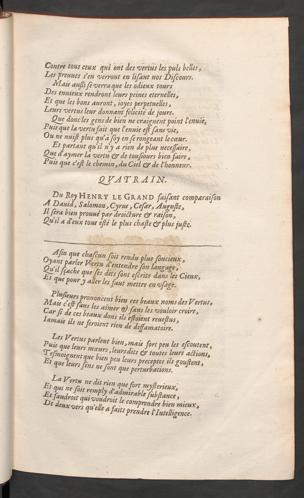 Contre tous ceux qui ont des vertus les puls belles,
Les preuues s'en verront en lisant nos Discours.
Mais aussi se verra que les odieux tours
Des ennieux rendront leurs peines eternelles,
Et que les bons auront, ioyes perpetuelles,
Leurs vertus leur donnant felicité de jours.
Que donc les gens de bien ne craignent point l'enuie,
Puis que la vertu fait que l'enuie est sans vie,
Ou ne nuist plus qu'à soy en se rongeant le cœur.
Et partant qu'il n'y a rien de plus necessaire,
Que d'aymer la vertu & de tousiours bien faire,
Puis que c'est le chemin, du Ciel & de l'honneur.
QVATRAIN.
Du Roy HENRY LE GRAND faisant comparaison
A Dauid, Salomon, Cyrus, Cesar, Auguste,
Il sera bien prouué par droicture & raison,
Qu'il a d'eux tous esté le plus chaste & plus juste.
Afin que chascun soit rendu plus soucieux,
Oyant parler Vertu d'entendre son langage,
Qu'il sçache que ses dits sont escrits dans les Cieux,
Et que pour y aller les faut mettre en vsage.
Plusieurs prononcent bien ces beaux noms des Vertus,
Mais c'est sans les aimer & sans les vouloir croire,
Car si de ces beaux dons ils estoient reuestus,
Iamais ils ne seroient rien de diffamatoire.
Les Vertus parlent bien, mais fort peu les escoutent,
Puis que leurs mœurs, leurs dits & toutes leurs actions,
Tesmoignent que bien peu leurs preceptes ils goustent,
Et que leurs sens ne sont que perturbations.
La Vertu ne dit rien que fort mysterieux,
Et qui ne soit remply d'admirable substance,
Et faudroit qui voudroit le comprendre bien mieux,
De deux vers qu'elle a faits prendre l'Intelligence.